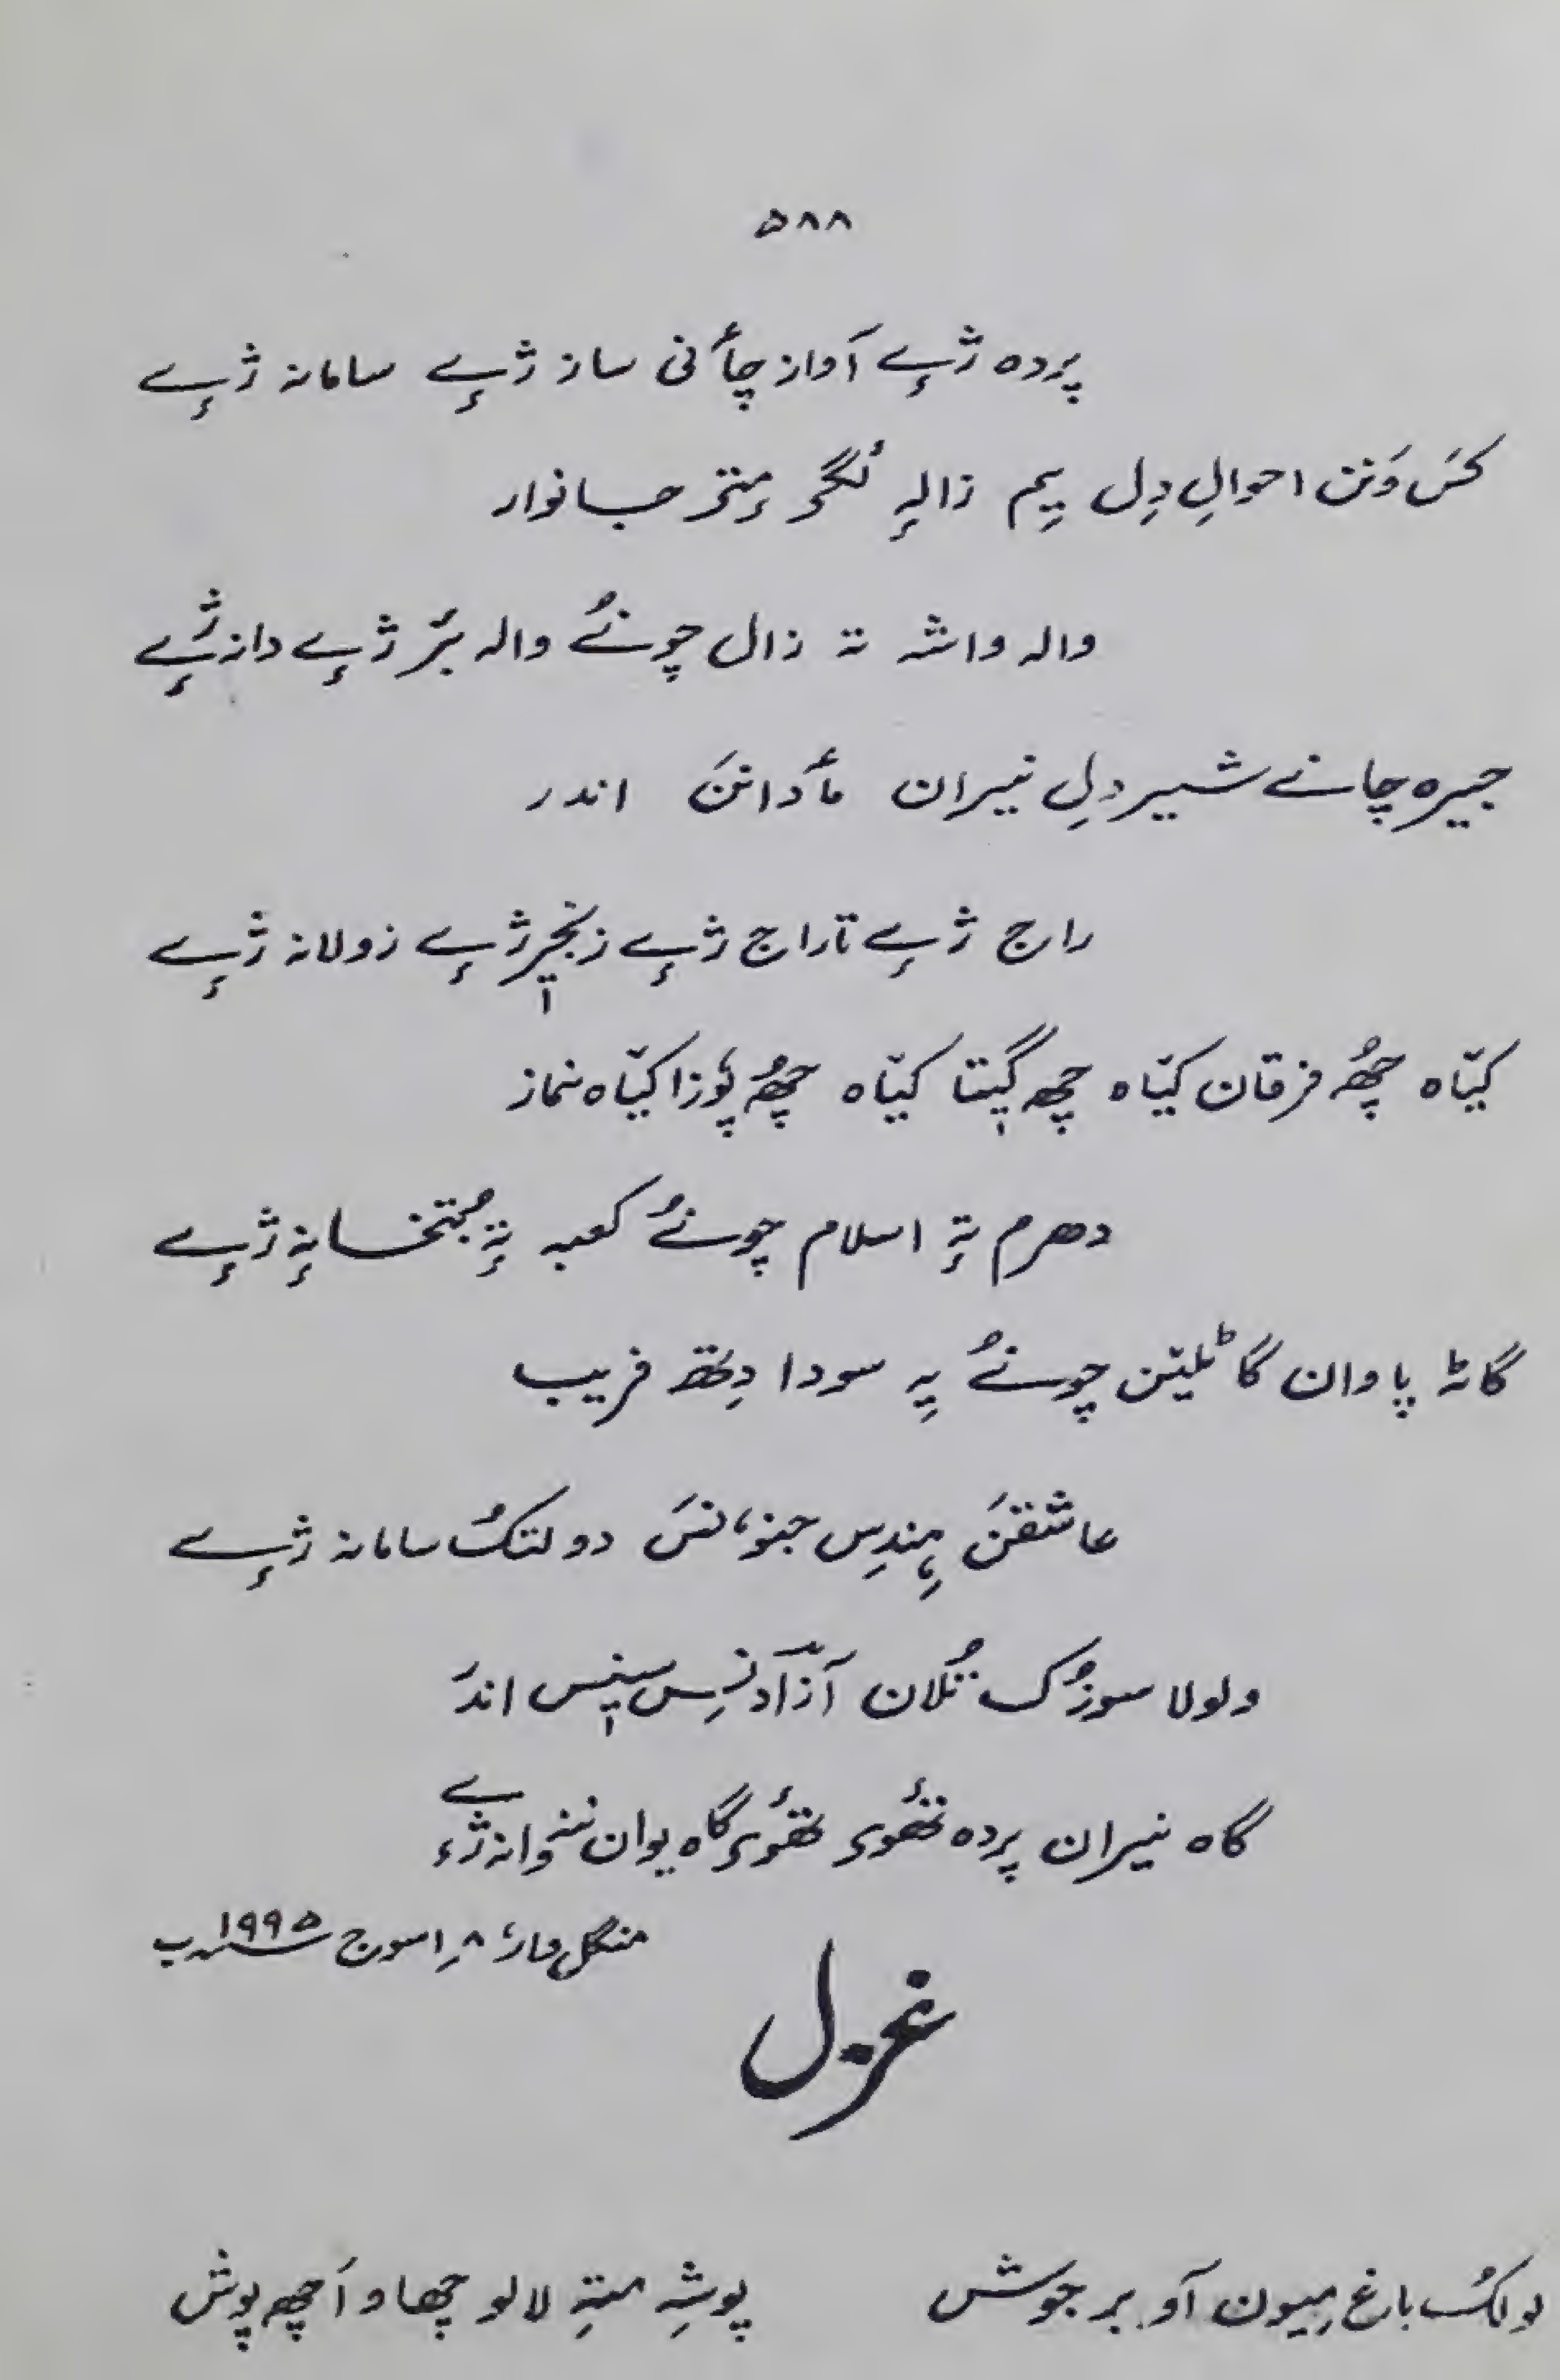 ۵۸۸
پردہ ژٕے آواز چأنی ساز ژٕے سامانہ ژٕے
کَس وَنن احوالِ دِل یِم زالہٕ لٔگۍ مٕتۍ جانوار
والہ واشہ تہ زال چونُے والہ بٔر ژٕے دانہ ژٕے
جیرہ چانے شیر دلِ نیران مأدانَن اندر
راج ژٕے تاراج ژٕے زنٖجیر ژٕے زولانہ ژٕے
کیّاہ چھُ فرقان کیّاہ چھ گیٖتا کیّاہ چھُ پوٗزا کیّاہ نماز
دھرم تہٕ اسلام چونُے کعبہ تہٕ بُتخانہٕ ژٕے
گاٹہ پاوان گاٹلیّن چونُے یہِ سودا دِتھ فریب
عاشقَن ہٕندِس جنوٗنَس دولتکُ سامانہ ژٕے
ولولا سوزُک تُلان آزادنِس سیٖنس اندَر
گاہ نیران پردہ تھٔوۍ تھٔوۍ گاہ یوان ننوانہ ژٕے
منگل وار ۸ اسوج ۱۹۹۵ ب
غزل
دولکُ باغ میون آو بر جوش پوشہِ متہِ لالو چھاو أچھ پوش